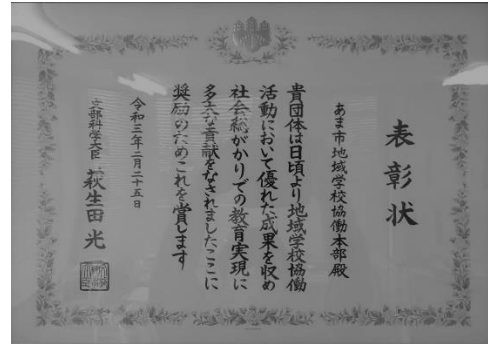 表彰状
あま市地域学校協働本部殿
貴団体は日頃より地域学校協働
活動において優れた成果を収め
社会総がかりでの教育実現に
多大な貢献をなされましたここに
奨励のためこれを賞します
令和三年二月二十五日
文部科学大臣 萩生田光一